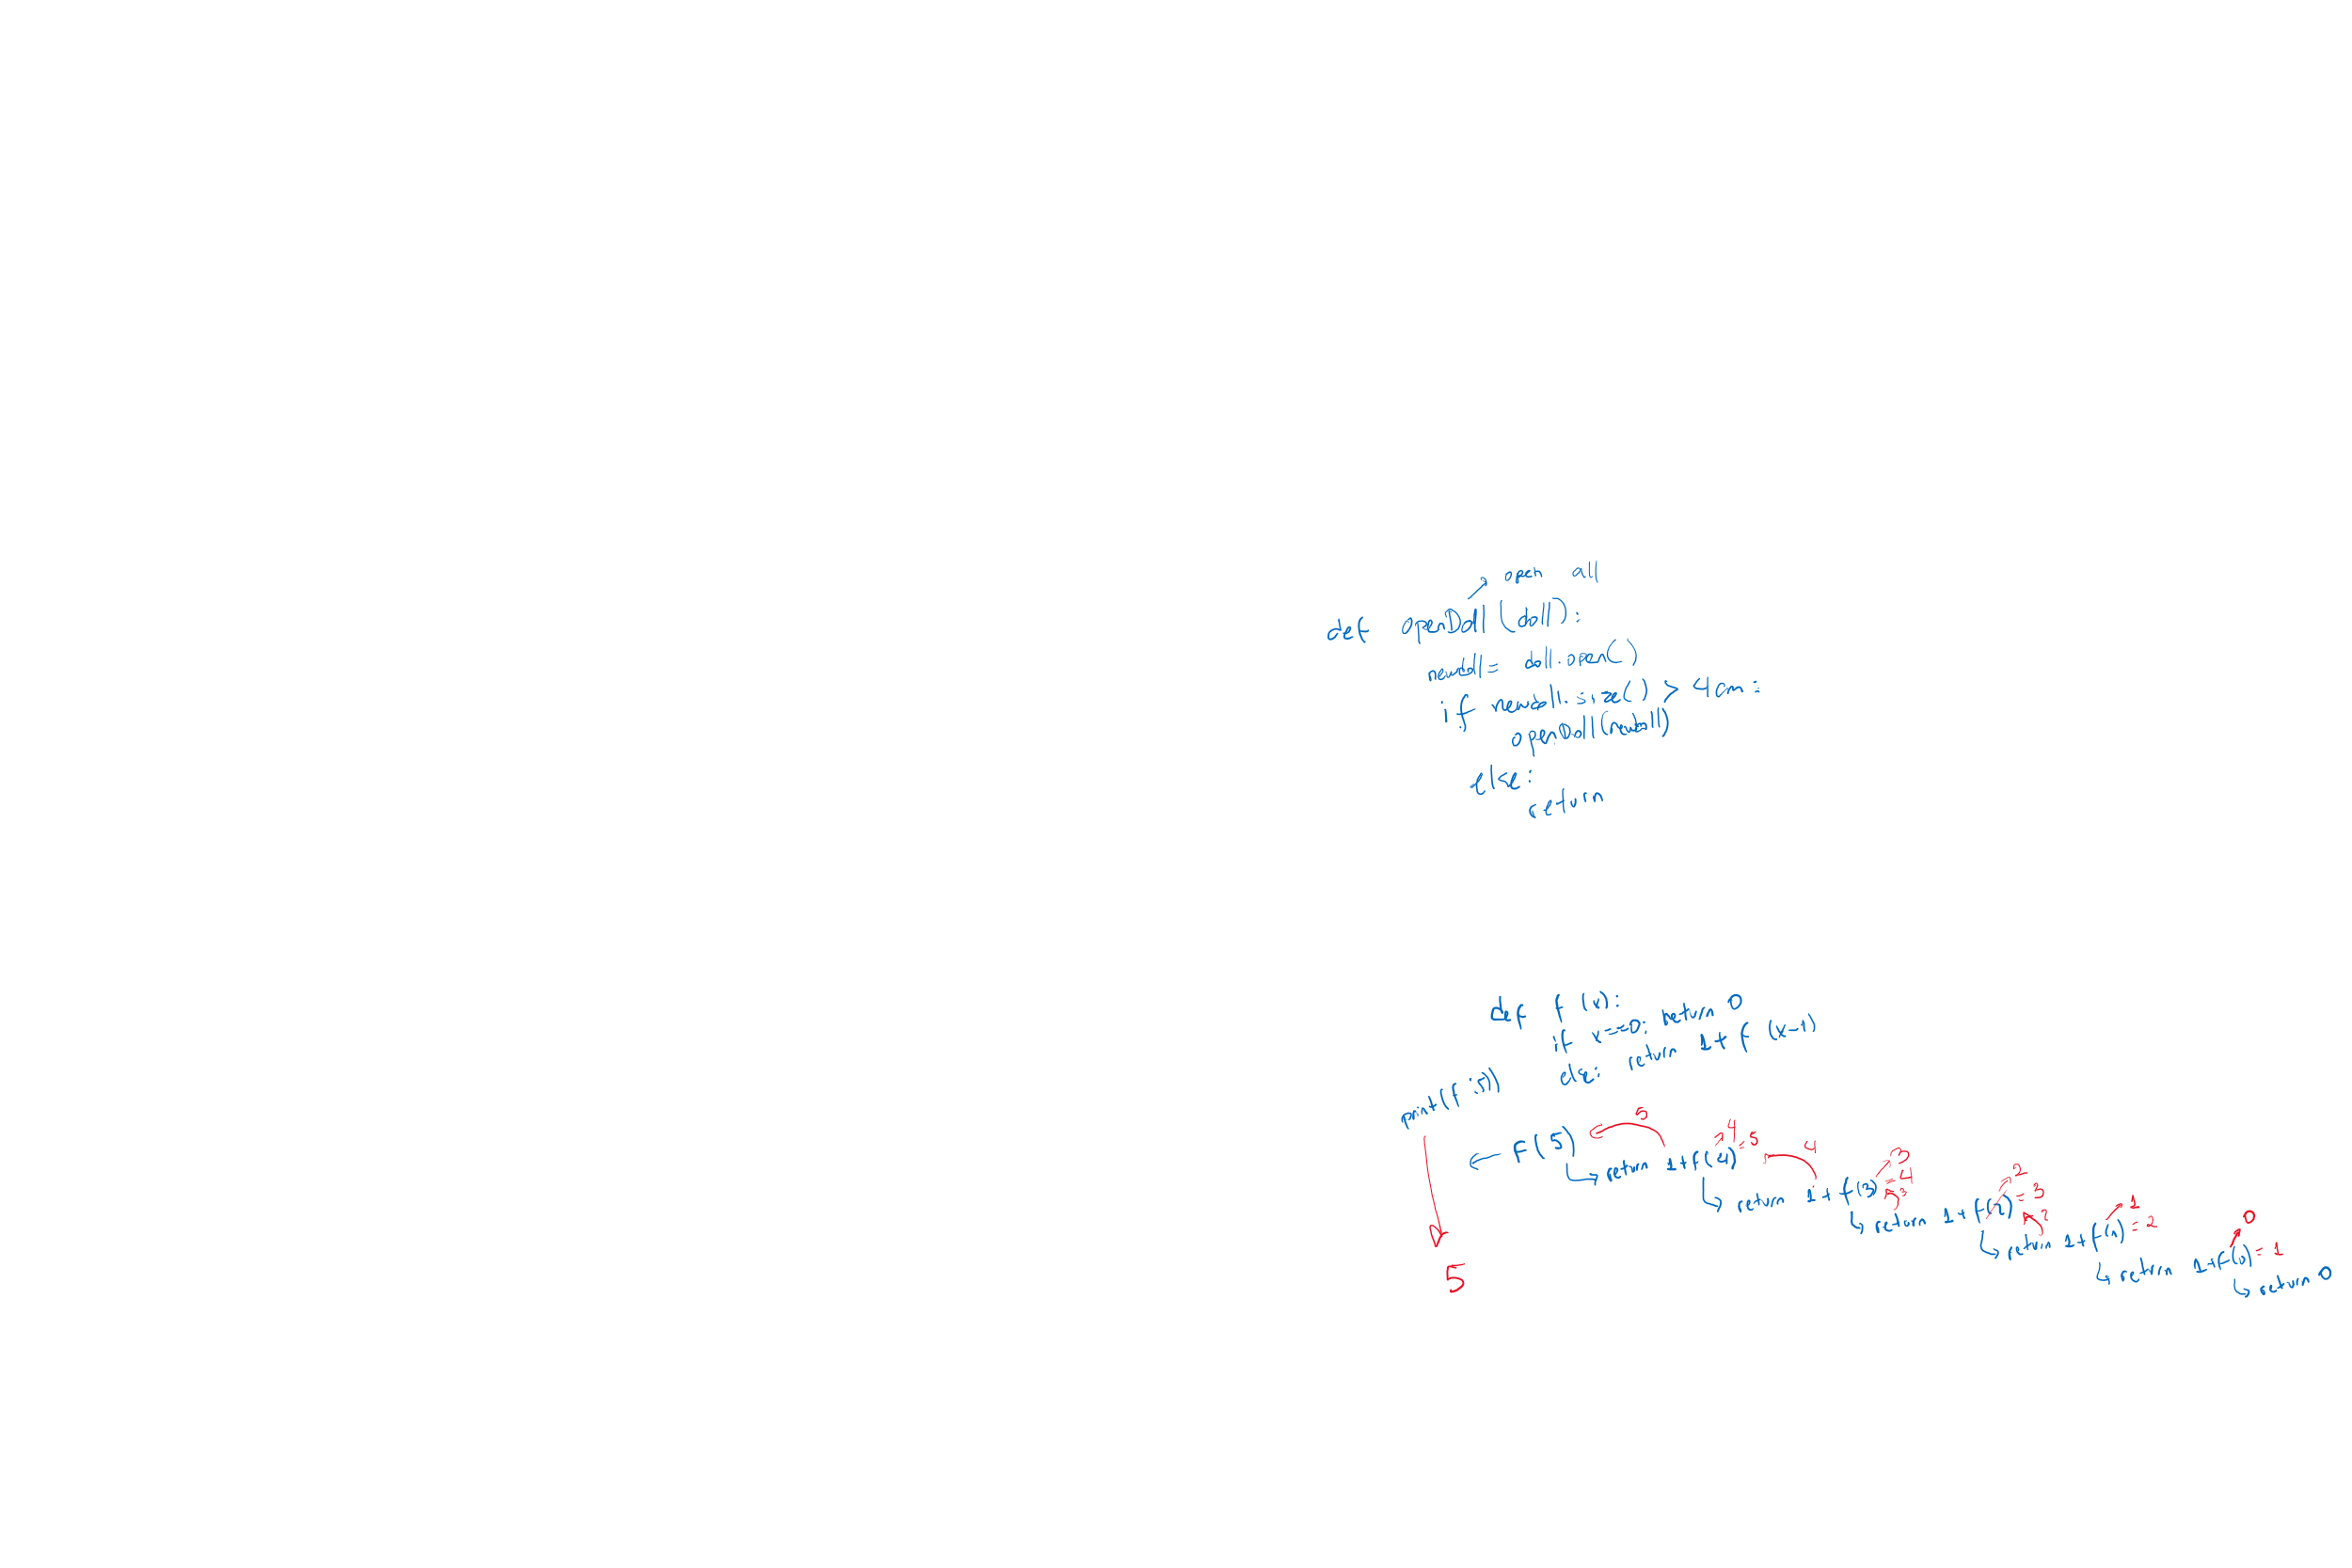 open all
def openDoll(doll):
newdoll = doll.open()
if newdoll.size() > 4cm:
openDoll(newdoll)
else:
return
def f(x):
if x==0: return 0
else: return 1+f(x-1)
print(f(5))
5
4
← f(5)
↳ return 1+f(4) = 5
4
3
↳ return 1+f(3) = 4
3
2
↳ return 1+f(2) = 3
2
1
↳ return 1+f(1) = 2
0
↳ return 1+f(0) = 1
↳ return 0
5